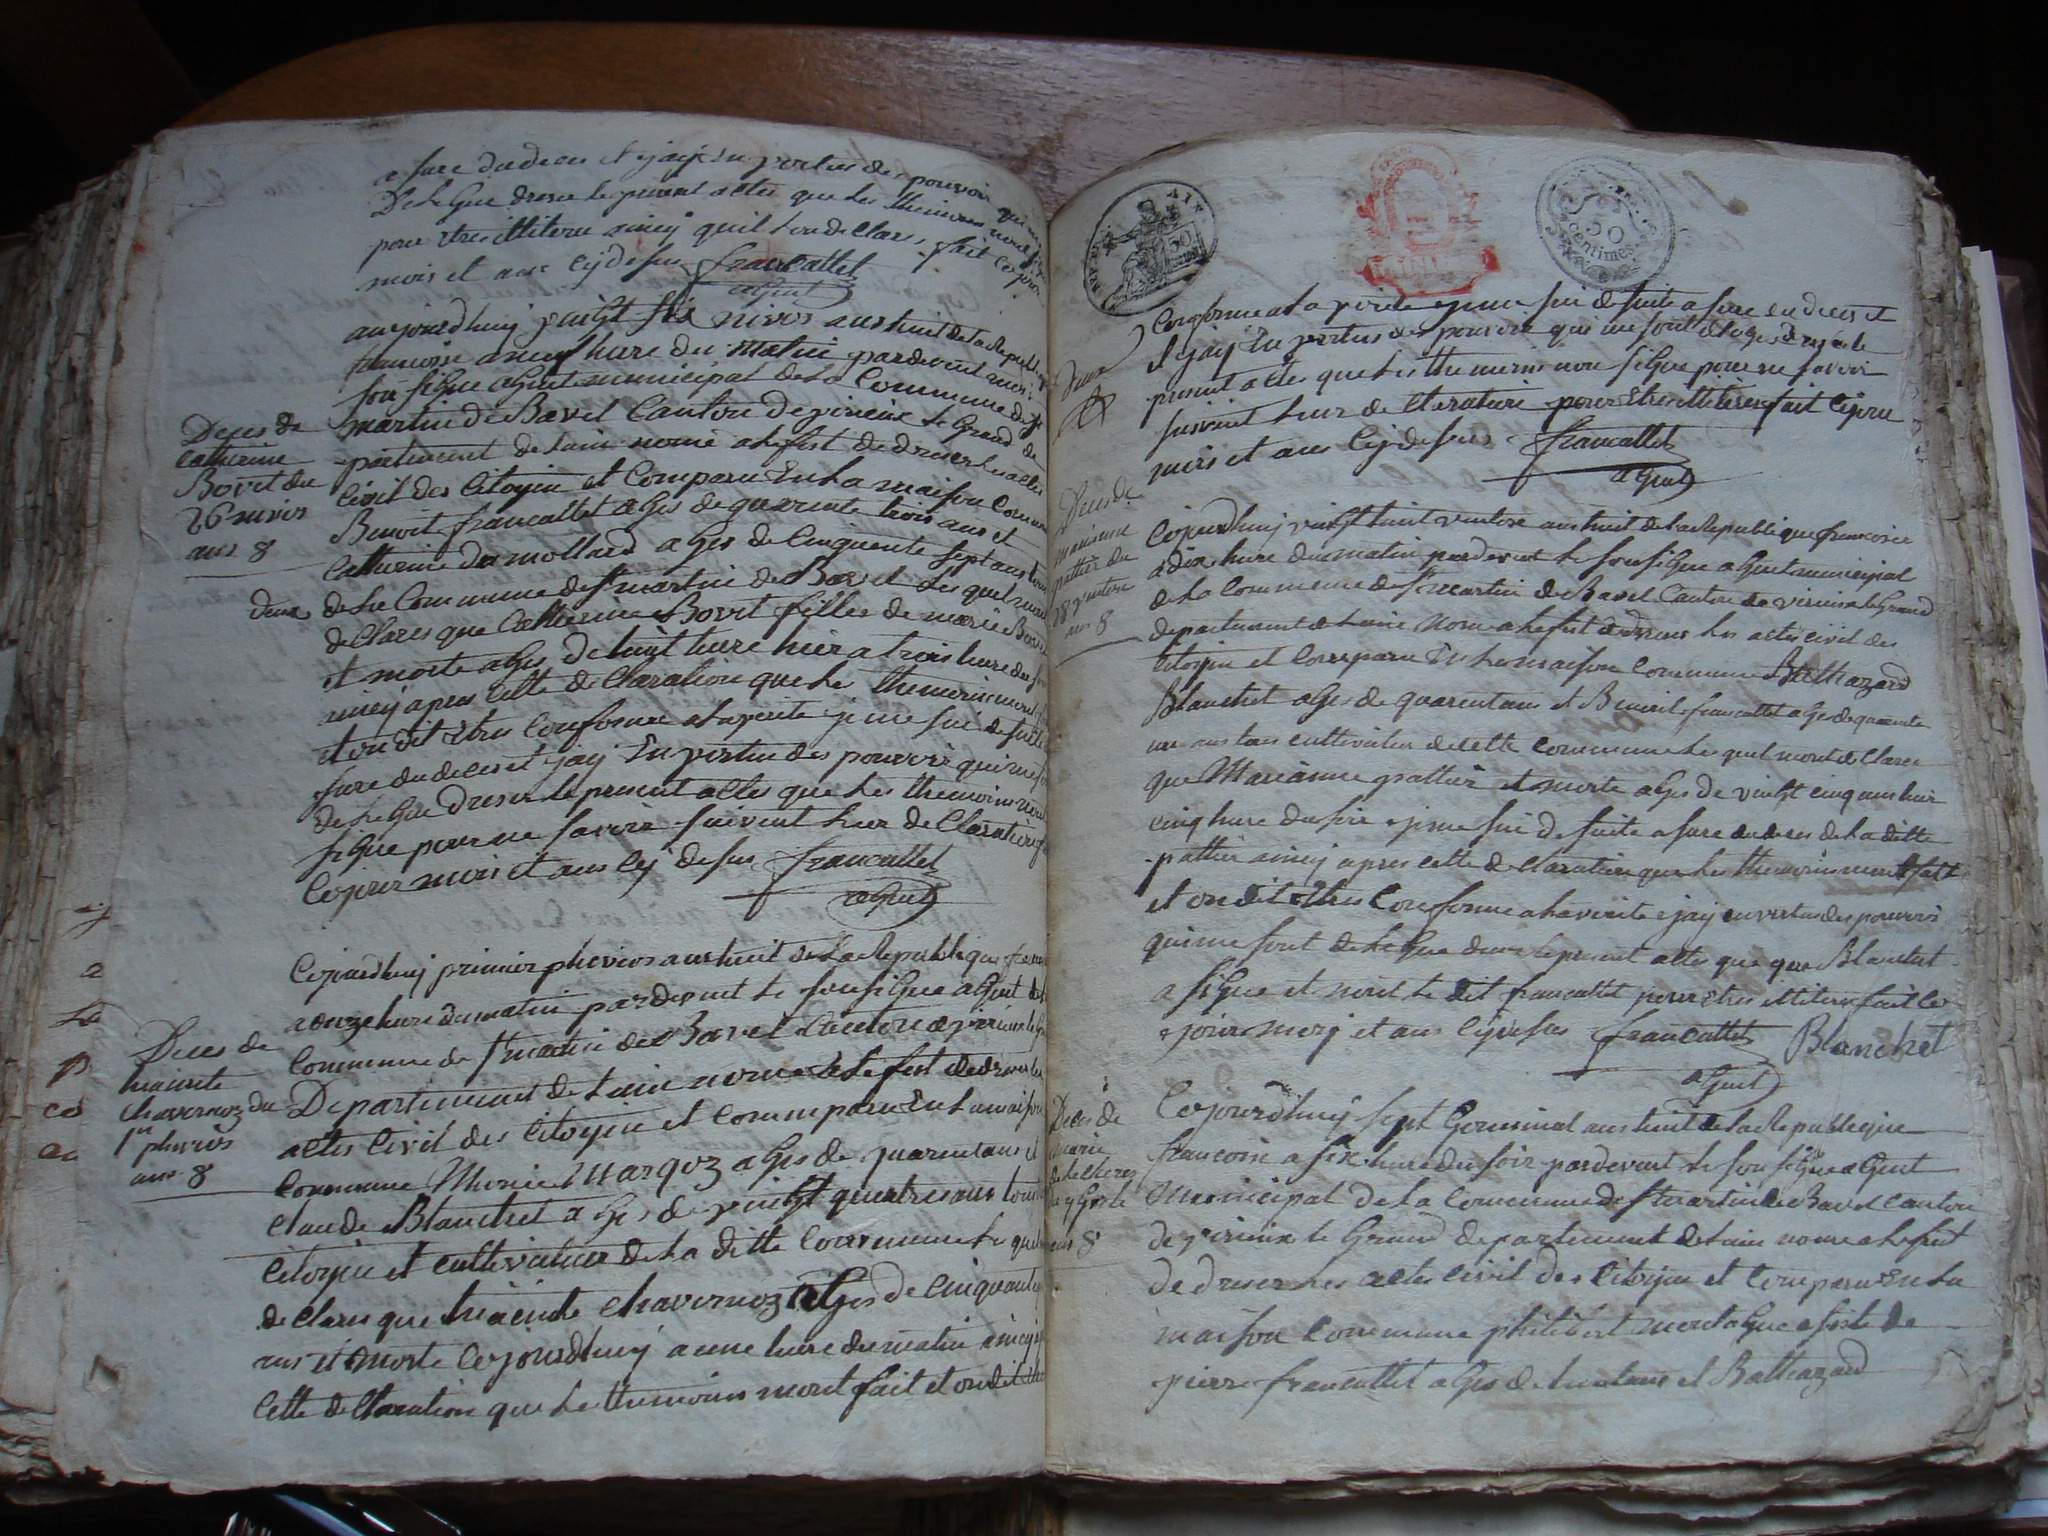 a fure du deces et jay en vertus des pouvoir qui
De legue dresse le present actes que les themoins
pour etres illiterer aincy quil lon de clares fait ce jour
mois et ans cy desu francallet
agent
aujourdhuy vingt six nivos ans huit de la Republique
francoise a heure du matin pardevent moi
sousigue agent municipal de la Commune de St
Martin de Bavel Canton de virieux le Grand de
partement de lain nomé a lefest de dreser les actes
civil des Citoyen et Comparu en la maison Commune
Benoit francallet ages de quarente trois ans et
Catherine du mollard ages de Cinquente sept ans tous
deux de la Commune de St martin de Bavel les quel mont
de clares que Catherine Bovet filles de marie Bovet
et morte ages de huit heure hier a trois heure du soir
aincy apres cette de claration que le themoins mont
et on dit etres conforme a la verite je me sui de suite
fure du deces et jay en vertue des pouvoir qui me
de legue dresser le present actes que les themoins non
sigue pour ne savoir suivent leur de claration
ce jour mois et ans cy desu francallet
agent
Deces de
Catherine
Bovet du
26 nivos
ans 8
Cejourdhuy primier pluvios ans huit de la Republique
a onze heure du matin pardevent le sousigue agent de la
Commune de St martin de Bavel Canton de virieux le
Departement de lain nome a le fest de dreser les
actes civil des Citoyen et Commparu en la maison
Commune Marquoz ages de quarent ans et
Claude Blanchet ages de vingt quatres ans tous
Citoyen et cultivateur de la ditte Commune le quel
de clares que hiacinte Chavornoz ages de Cinquante
ans et morte cejourdhuy a une heure du matin aincy
cette de claration que le themoins mont fait et on dit
Deces de
hiacinte
Chavornoz du
1er pluvios
ans 8
AIN
50
50
centimes
Conforme a la verite je me sui de suite a fure du deces et
et jay en vertus des pouvoir qui me sont delegue dresse le
present actes que les themoins non sigue pour ne savoir
suivent leur de claration pour etres illiteres fait ce jour
mois et ans cy desu francallet
agent
Deces de
marianne
pattier du
28 ventose
ans 8
Cejourdhuy vingt huit ventose ans huit de la Republique francoise
a dix heure du matin pardevent le sousigue agent municipal
de la commune de St martin de Bavel Canton de virieux le Grand
departement de lain nome a le fest de dreser les actes civil des
Citoyen et Comparu en la maison commune Balthazard
Blanchet ages de quarent ans et Benoit francallet ages de quarente
ans tous cultivateur de cette commune les quel mont de clares
que Marianne pattier et morte ages de vingt cinq ans hier
cinq heure du soir je me sui de suite a fure du deces de la ditte
pattier aincy apres cette de claration que les themoins mont fait
et on dit etres Conforme a la verite jay en vertus des pouvoirs
qui me sont de legue dresse le present actes que que Blanchet
a sigue et nont le dit francallet pour etres illiteres fait ce
jour moy et ans cy desu francallet Blanchet
agent
Deces de
marie
ans 8
Cejourdhuy sept Germinal ans huit de la Republique
francoise a six heure du soir pardevent le sousigue agent
Municipal de la Commune de St martin de Bavel canton
de virieux le Grand departement de lain nome a le fest
de dreser les actes civil des Citoyen et Comparu en la
maison Commune philibert montague
pierre francallet ages de ans et Balthazard